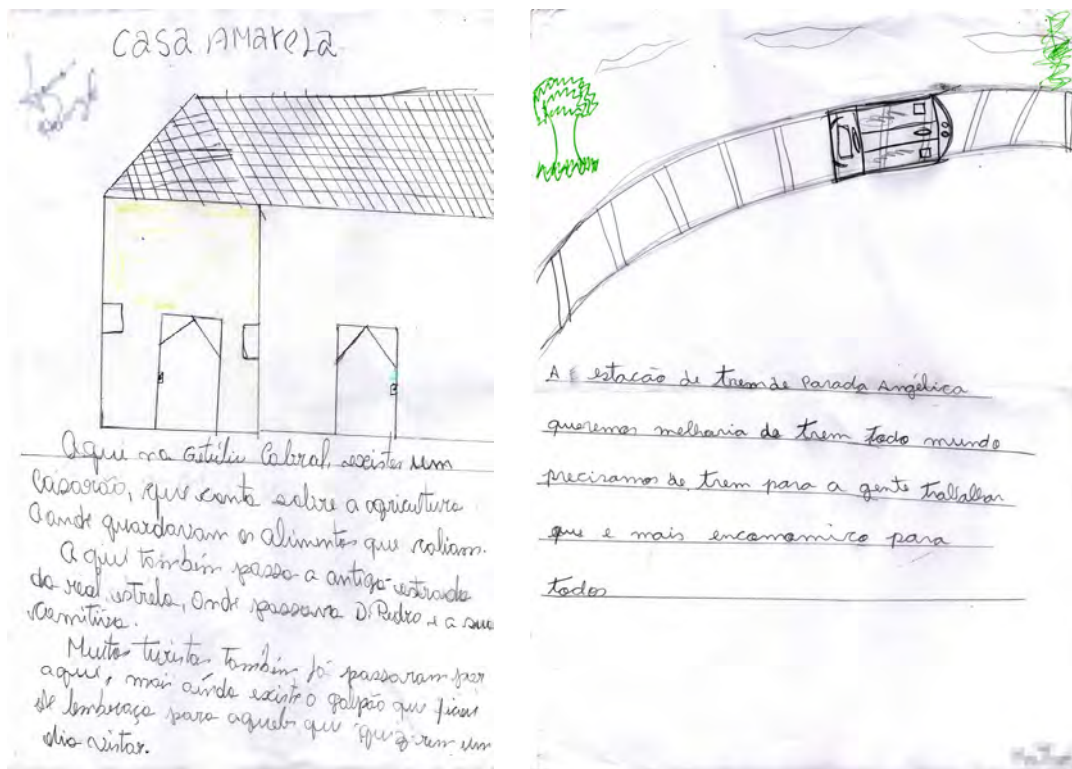 Casa Amarela
Aqui na Getúliu Cabral, existes um
Casarão, que conta sobre a agricultura
Aonde guardavam os alimentos que caliam.
Aqui também passo a antiga estrada
da real estrela, onde passava D. Pedro e a sua
comitiva.
Muitos turistas também já passaram por
aqui, mais ainda existe o galpão que ficou
de lembraça para aqueles que quizerem um
dia vistar.
A estacão de trem de Parada Angélica
queremos melharia de trem todo mundo
precisamos de trem para a gente trabalhar
que e mais encomomico para
todos